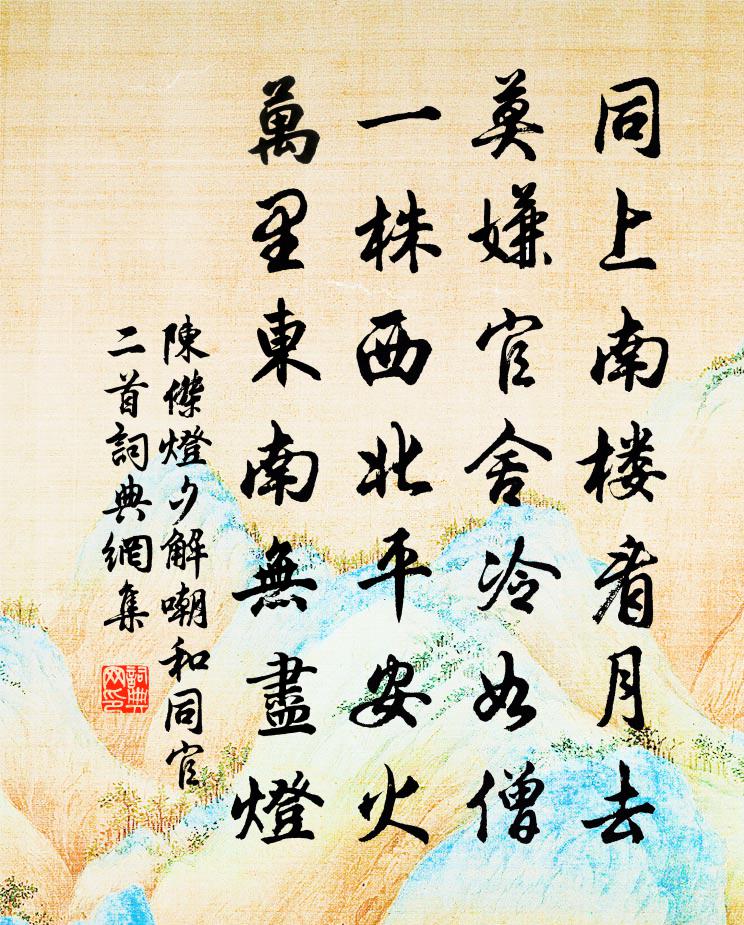 同上南楼看月去
莫嫌官舍冷如僧
一株西北平安火
萬里東南無盡燈
陳傑燈夕解嘲和同官
二首詞典網集
詞典
网印